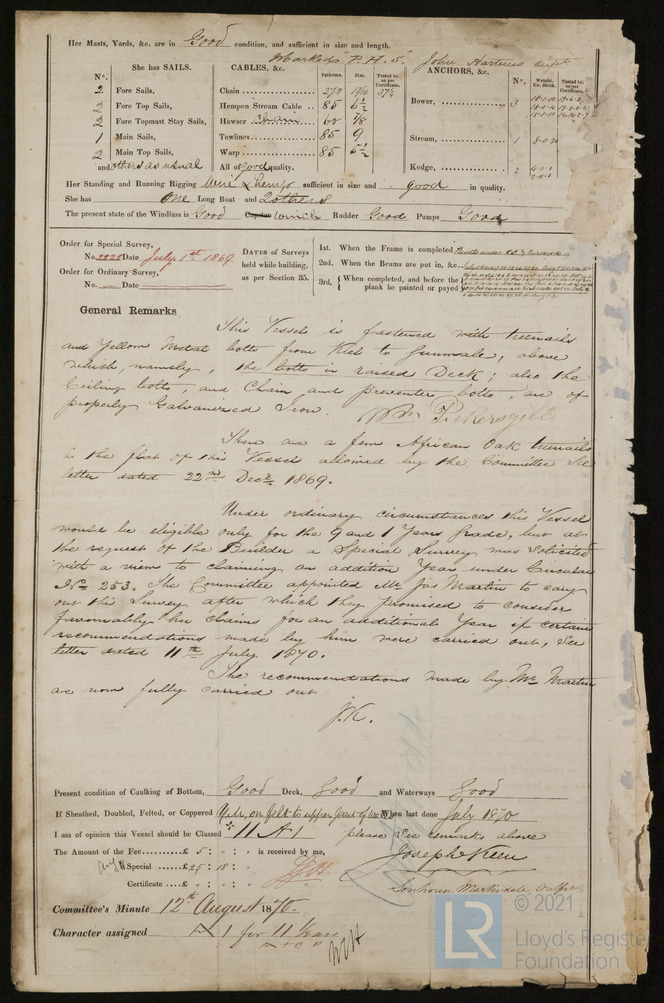 Her Masts, Yards, &c. are in Good condition, and sufficient in size and length.
Marked "P.H.S."
She has SAILS.
CABLES, &c.
Fathoms.
Size.
Tested to, as per Certificate.
ANCHORS, &c.
N°.
Weight. Ex. Stock.
Tested to as per Certificate.
N°.
2 Fore Sails,
2 Fore Top Sails,
2 Fore Topmast Stay Sails,
1 Main Sails,
2 Main Top Sails,
and others as usual
Chain 270
Hempen Stream Cable 85 6½
Hawser Chain 60 7/8
Towlines 85 9
Warp 85 5½
All of good quality.
Bower, 3
Stream, 1 8-0-20
Kedge, 2
Her Standing and Running Rigging Wire & hemp sufficient in size and good in quality.
She has One Long Boat and 2 others
The present state of the Windlass is Good Capstan Rudder Good Pumps Good
Order for Special Survey,
No. 2225 Date July 1st 1869
Order for Ordinary Survey,
No. Date
DATES of Surveys
held while building,
as per Section 35.
1st. When the Frame is completed
2nd. When the Beams are put in, &c.
3rd. { When completed, and before the
plank be painted or payed
General Remarks
This Vessel is fastened with treenails
and Yellow Metal bolts from Keel to Gunwale, above
which, namely, the bolts in raised Deck; also the
Ceiling bolts, and Chain and preventer bolts, are of
properly Galvanized Iron. Wm Pickersgill
There are a few African Oak treenails
in the flat of this Vessel allowed by the Committee See
letter dated 22nd Decr 1869.
Under ordinary circumstances this Vessel
would be eligible only for the 9 and 1 Years Grade, but at
the request of the Builder a Special Survey was Solicited
with a view to claiming an addition Year under Circular
No 253. The Committee appointed Mr Jas Martin to carry
out this Survey after which they promised to consider
favourably her claims for an additional Year if certain
recommendations made by him were carried out, See
letter dated 11th July 1870.
The recommendations made by Mr Martin
are now fully carried out
J.K.
Present condition of Caulking of Bottom, Good Deck, Good and Waterways Good
If Sheathed, Doubled, Felted, or Coppered on felt to upper part of When last done July 1870
I am of opinion this Vessel should be Classed 11 A1 please see remarks above
The Amount of the Fee £ 5 : - : - is received by me,
Special £ 25 : 18 : -
Certificate £ - : - : -
Joseph Keen
Committee's Minute 12th August 1870.
Character assigned A 1 for 11 Years
LR
© 2021
Lloyd's Register
Foundation